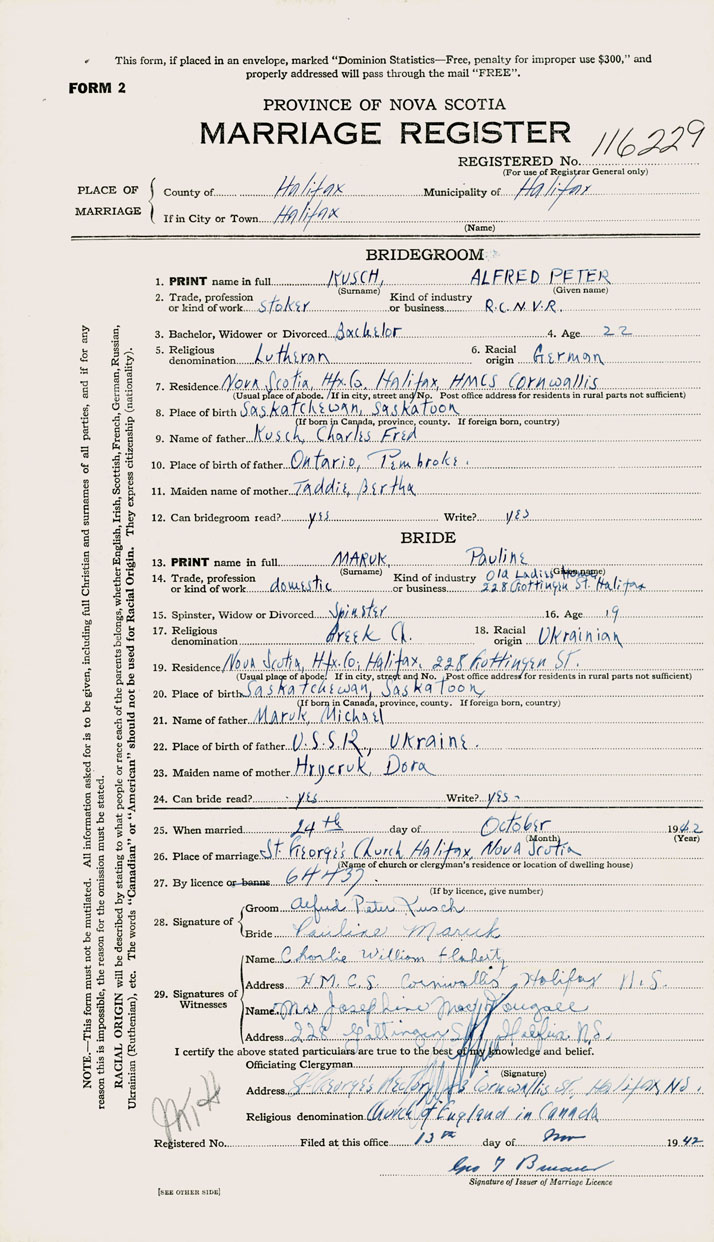 This form, if placed in an envelope, marked “Dominion Statistics—Free, penalty for improper use $300,” and
properly addressed will pass through the mail “FREE”.
FORM 2
PROVINCE OF NOVA SCOTIA
MARRIAGE REGISTER
REGISTERED No. 116229
(For use of Registrar General only)
PLACE OF MARRIAGE
County of Halifax Municipality of Halifax
If in City or Town Halifax
(Name)
BRIDEGROOM
1. PRINT name in full KUSCH, ALFRED PETER
(Surname) (Given name)
2. Trade, profession or kind of work stoker Kind of industry or business R.C.N.V.R.
3. Bachelor, Widower or Divorced Bachelor 4. Age 22
5. Religious denomination Lutheran 6. Racial origin German
7. Residence Nova Scotia, Hfx.Co. Halifax, HMCS Cornwallis
(Usual place of abode. If in city, street and No. Post office address for residents in rural parts not sufficient)
8. Place of birth Saskatchewan, Saskatoon
(If born in Canada, province, county. If foreign born, country)
9. Name of father Kusch, Charles Fred
10. Place of birth of father Ontario, Pembroke.
11. Maiden name of mother Taddie, Bertha
12. Can bridegroom read? yes Write? yes
BRIDE
13. PRINT name in full MARUK, Pauline
(Surname) (Given name)
14. Trade, profession or kind of work domestic Kind of industry or business Old Ladies Home 228 Gottingen St. Halifax
15. Spinster, Widow or Divorced Spinster 16. Age 19
17. Religious denomination Greek Ch. 18. Racial origin Ukrainian
19. Residence Nova Scotia, Hfx.Co, Halifax, 228 Gottingen St.
(Usual place of abode. If in city, street and No. Post office address for residents in rural parts not sufficient)
20. Place of birth Saskatchewan, Saskatoon
(If born in Canada, province, county. If foreign born, country)
21. Name of father Maruk, Michael
22. Place of birth of father U.S.S.R., Ukraine.
23. Maiden name of mother Hrycruk, Dora
24. Can bride read? yes Write? yes
25. When married 24th day of October 1942
(Month) (Year)
26. Place of marriage St. George's Church Halifax, Nova Scotia
(Name of church or clergyman's residence or location of dwelling house)
27. By licence or banns 64437.
(If by licence, give number)
28. Signature of
Groom Alfred Peter Kusch
Bride Pauline Maruk
29. Signatures of Witnesses
Name Charlie William Flaherty
Address H.M.C.S. Cornwallis, Halifax N.S.
Name Mrs Josephine MacDougall
Address 228 Gottingen St Halifax N.S.
I certify the above stated particulars are true to the best of my knowledge and belief.
Officiating Clergyman
(Signature)
Address St George's Rectory, Cornwallis St, Halifax N.S.
Religious denomination Church of England in Canada
Registered No. Filed at this office 13th day of Nov 1942
Signature of Issuer of Marriage Licence
[SEE OTHER SIDE]
NOTE.—This form must not be mutilated. All information asked for is to be given, including full Christian and surnames of all parties, and if for any
reason this is impossible, the reason for the omission must be stated.
RACIAL ORIGIN will be described by stating to what people or race each of the parents belongs, whether English, Irish, Scottish, French, German, Russian,
Ukrainian (Ruthenian), etc. The words “Canadian” or “American” should not be used for Racial Origin. They express citizenship (nationality).